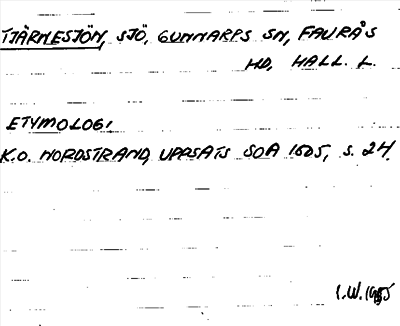 TJÄRNESJÖN, SJÖ, GUNNARPS SN, FAURÅS
HD, HALL. L.
ETYMOLOGI
K.O. NORDSTRAND, UPPSATS SOA 1505, S. 24.
I.W. 1985